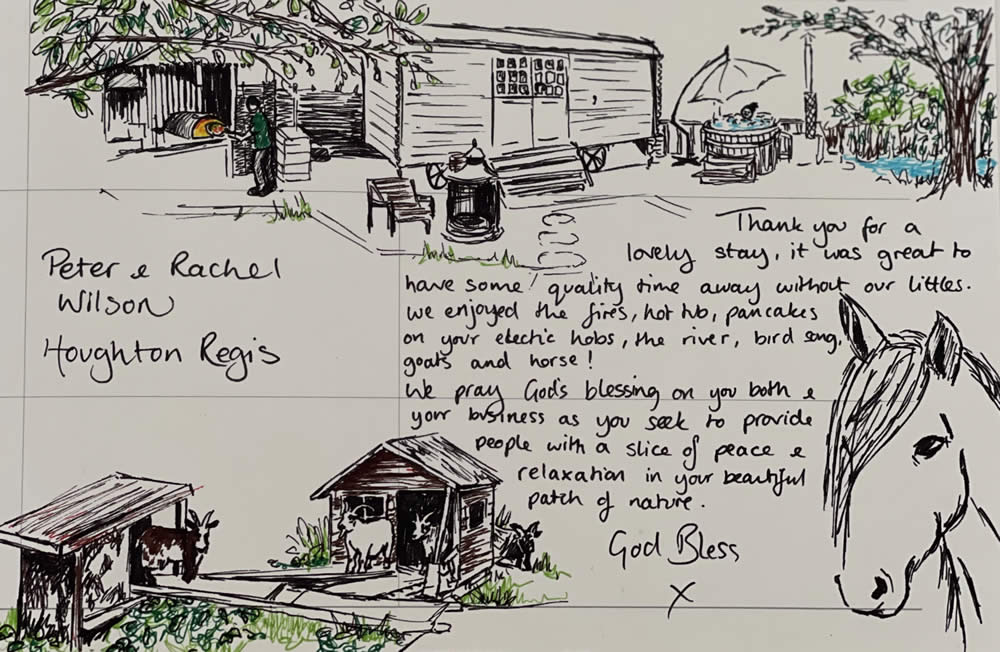 Peter & Rachel
Wilson
Houghton Regis
Thank you for a
lovely stay, it was great to
have some quality time away without our littles.
We enjoyed the fires, hot tub, pancakes
on your electric hobs, the river, bird song,
goats and horse!
We pray God's blessing on you both &
your business as you seek to provide
people with a slice of peace &
relaxation in your beautiful
patch of nature.
God Bless
x